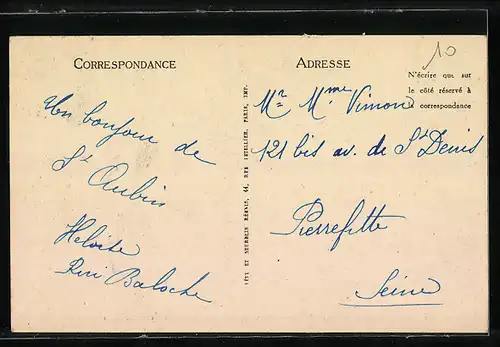 10
CORRESPONDANCE
Un bonjour de
St Aubin
Heloïse
René Baloche
ADRESSE
N'écrire que sur
le côté réservé à
la correspondance
Mr Mme Vimon
121 bis av. de St Denis
Pierrefitte
Seine
RÉUNIS, 64, RUE LETELLIER, PARIS, IMP.